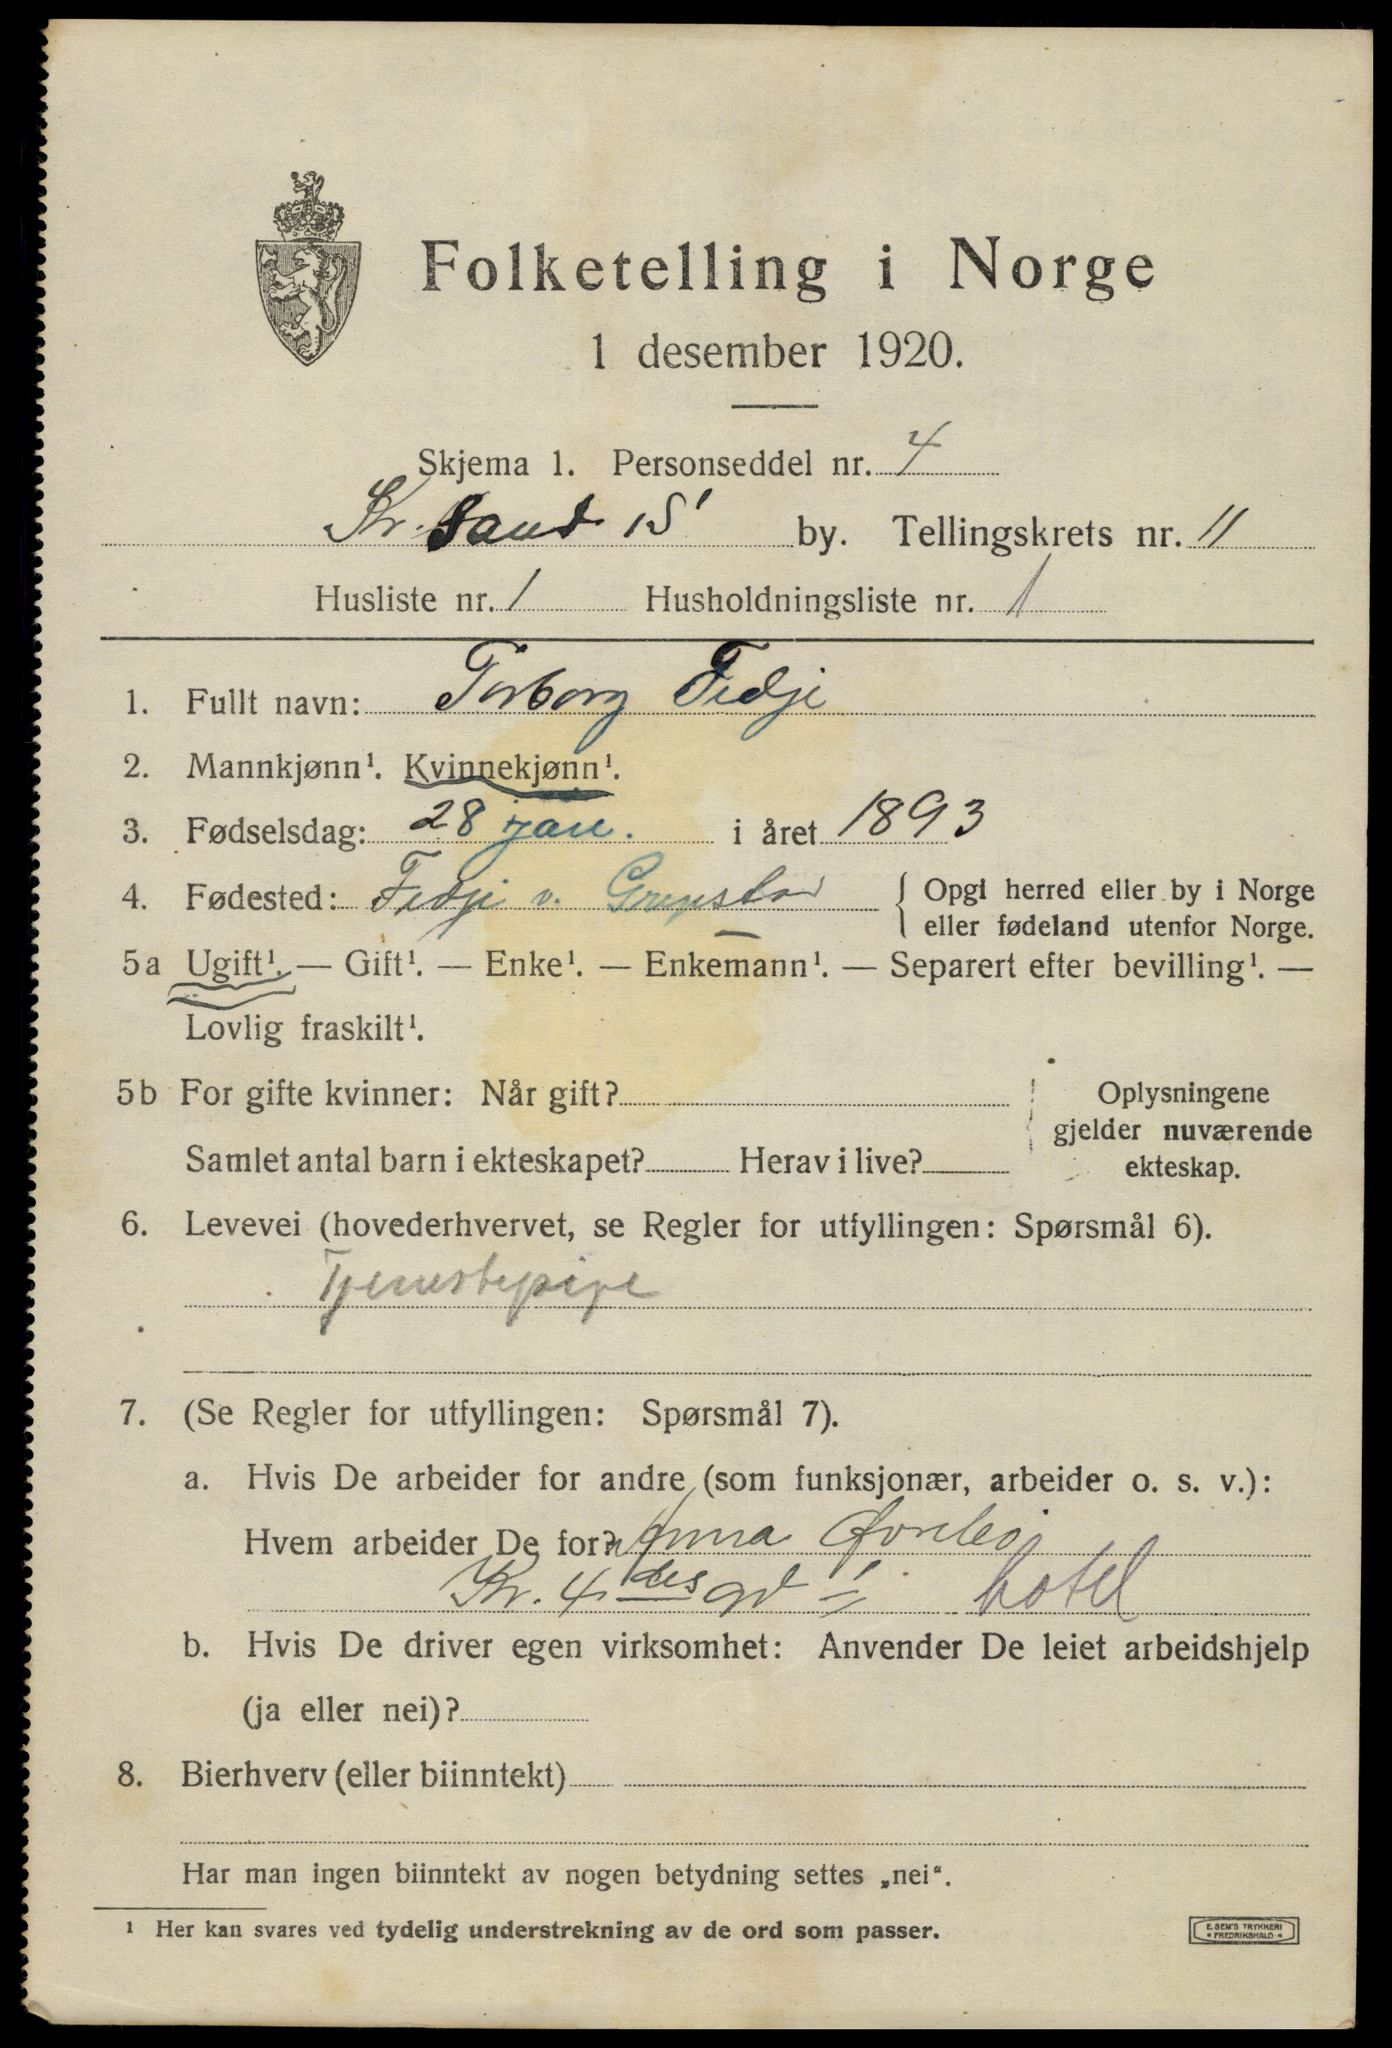 Folketelling i Norge
1 desember 1920.
Skjema 1. Personseddel nr. 4
Kr. Sand S by. Tellingskrets nr. 11
Husliste nr. 1 Husholdningsliste nr. 1
1. Fullt navn: Torborg Fedje
2. Mannkjønn¹. Kvinnekjønn¹.
3. Fødselsdag: 28 jan. i året 1893
4. Fødested: Fedje v. { Opgi herred eller by i Norge
eller fødeland utenfor Norge.
5a Ugift¹. — Gift¹. — Enke¹. — Enkemann¹. — Separert efter bevilling¹. —
Lovlig fraskilt¹.
5b For gifte kvinner: Når gift? Oplysningene
gjelder nuværende
Samlet antal barn i ekteskapet? Herav i live? ekteskap.
6. Levevei (hovederhvervet, se Regler for utfyllingen: Spørsmål 6).
Tjenestepige
7. (Se Regler for utfyllingen: Spørsmål 7).
a. Hvis De arbeider for andre (som funksjonær, arbeider o. s. v.):
Hvem arbeider De for? Anna
Kr. 4 des gd hotel
b. Hvis De driver egen virksomhet: Anvender De leiet arbeidshjelp
(ja eller nei)?
8. Bierhverv (eller biinntekt)
Har man ingen biinntekt av nogen betydning settes „nei“.
¹ Her kan svares ved tydelig understrekning av de ord som passer.
E. SEM'S TRYKKERI
• FREDRIKSHALD •